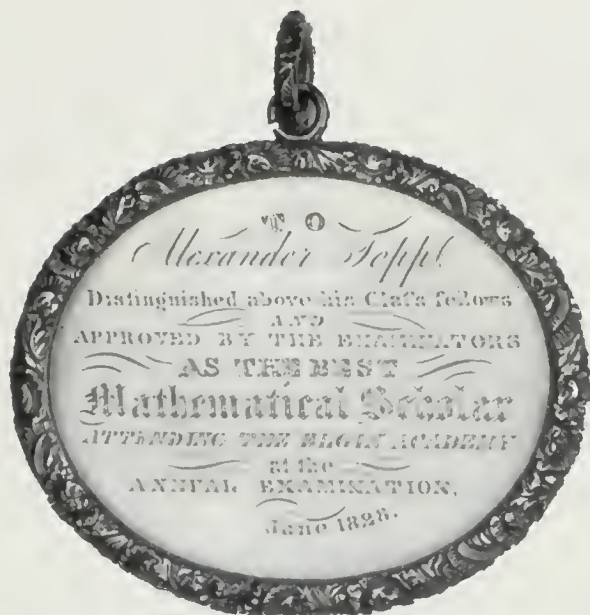 TO
Alexander
Distinguished above his Claſs fellows
AND
APPROVED BY THE EXAMINATORS
AS THE BEST
Mathematical Scholar
ATTENDING THE ELGIN ACADEMY
at the
ANNUAL EXAMINATION,
June 1828.